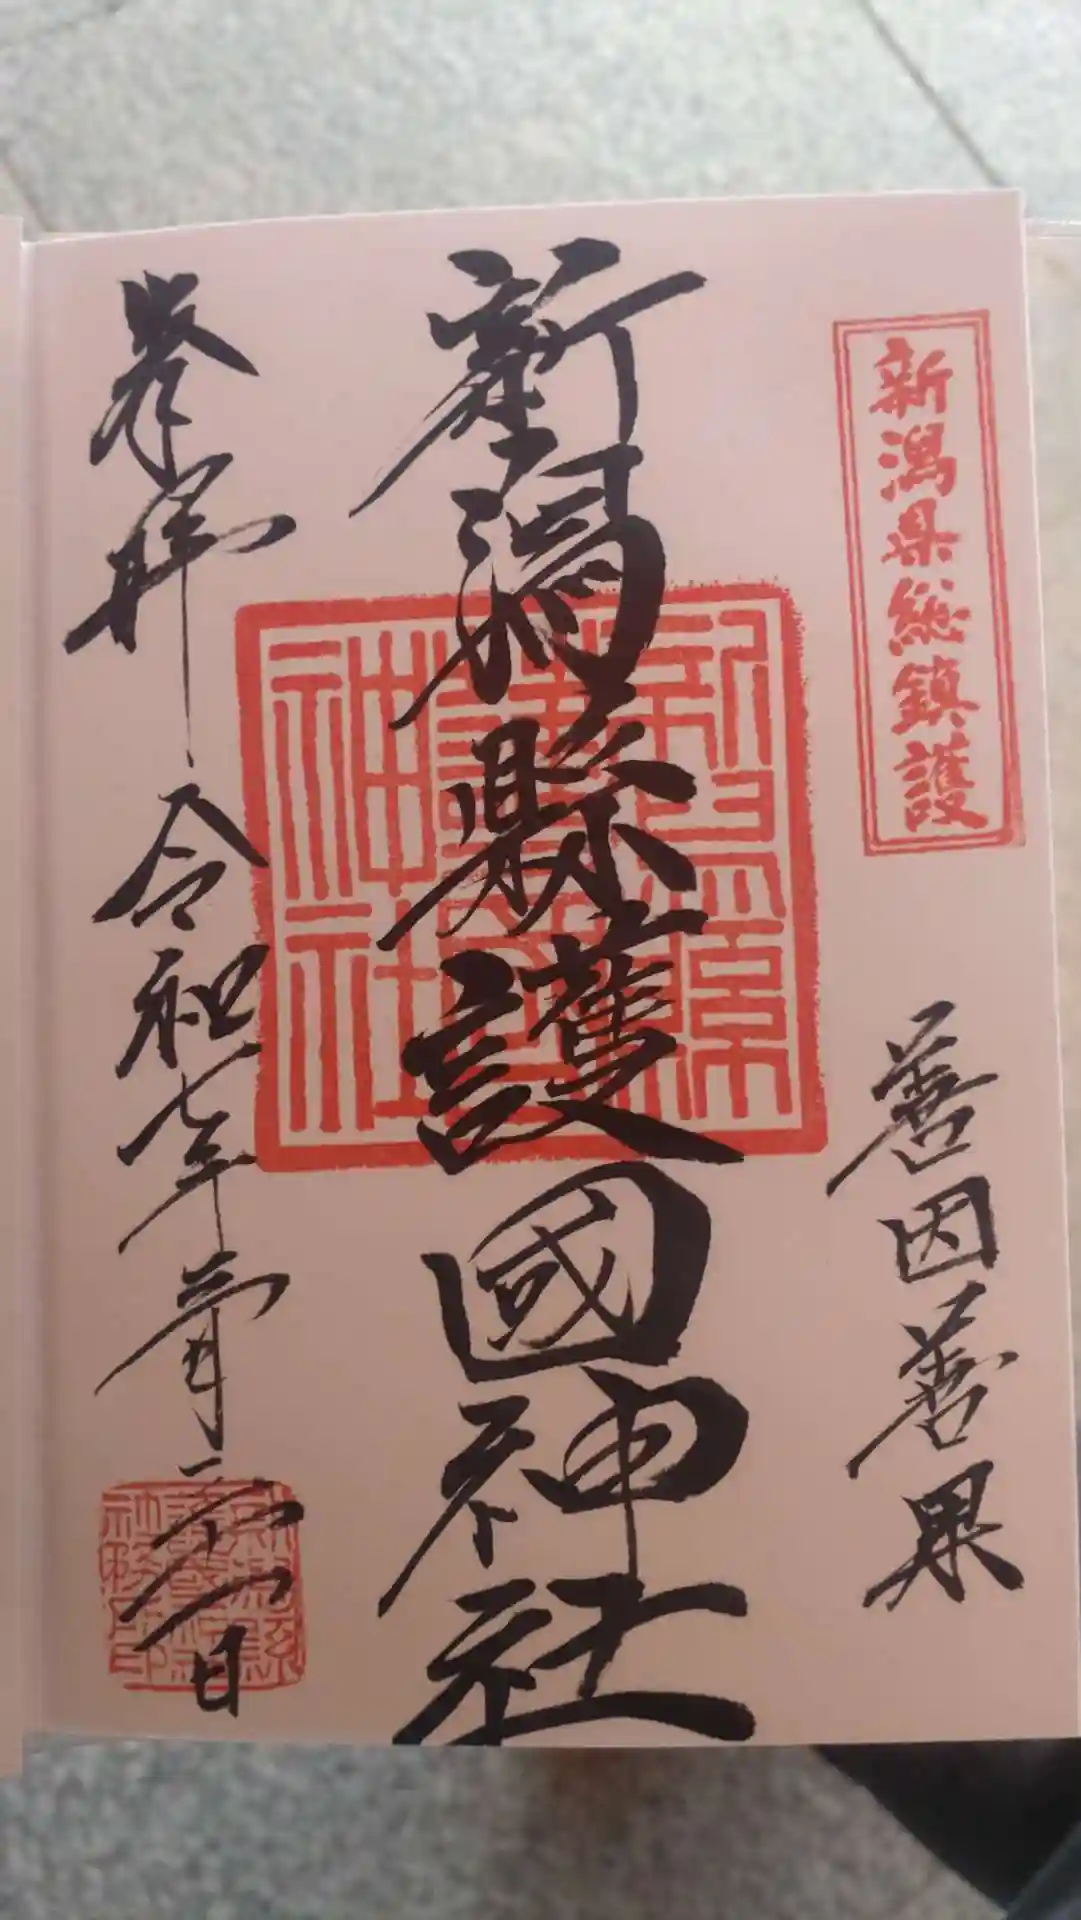 新潟県総鎮護
善因善果
新潟縣護國神社
新潟縣護國神社
奉拝
令和七年三月二六日
新潟縣護國神社社務所印